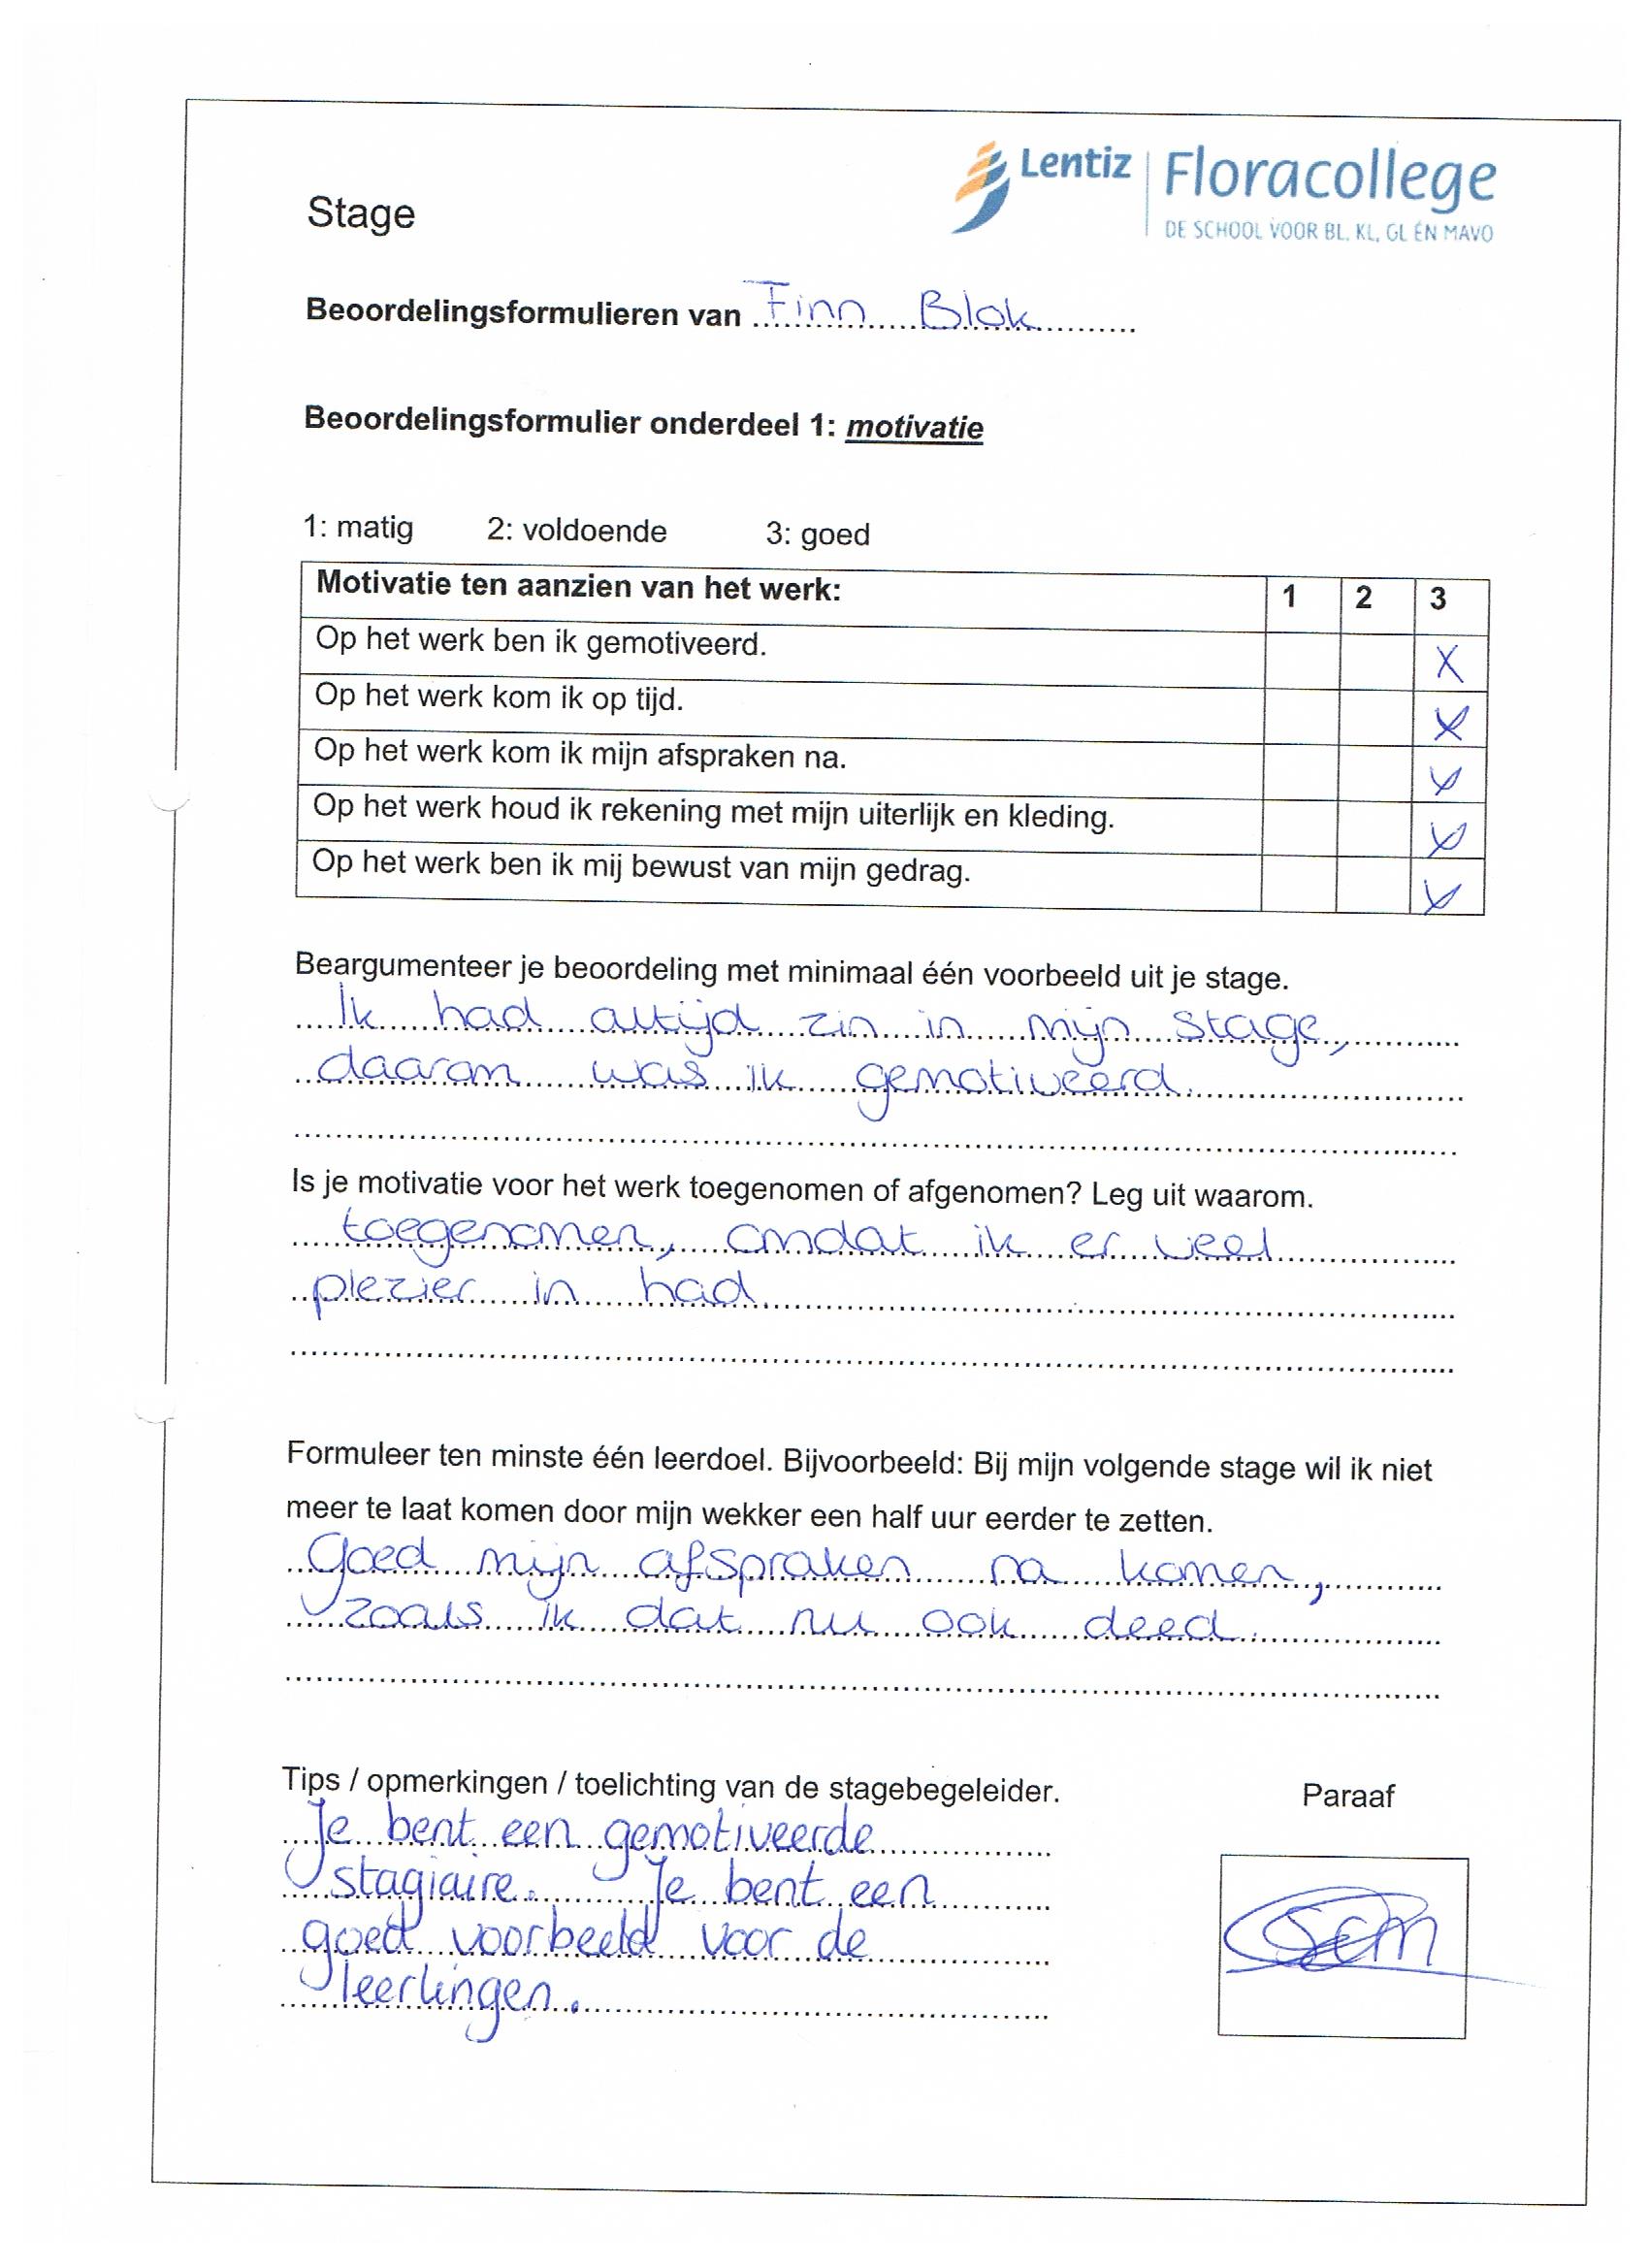 Lentiz
Floracollege
DE SCHOOL VOOR BL, KL, GL ÉN MAVO
Stage
Beoordelingsformulieren van Finn Blok
Beoordelingsformulier onderdeel 1: motivatie
1: matig 2: voldoende 3: goed
Motivatie ten aanzien van het werk: 1 2 3
Op het werk ben ik gemotiveerd. X
Op het werk kom ik op tijd. X
Op het werk kom ik mijn afspraken na. X
Op het werk houd ik rekening met mijn uiterlijk en kleding. X
Op het werk ben ik mij bewust van mijn gedrag. X
Beargumenteer je beoordeling met minimaal één voorbeeld uit je stage.
Ik had altijd zin in mijn stage,
daarom was ik gemotiveerd.
Is je motivatie voor het werk toegenomen of afgenomen? Leg uit waarom.
toegenomen, omdat ik er veel
plezier in had
Formuleer ten minste één leerdoel. Bijvoorbeeld: Bij mijn volgende stage wil ik niet
meer te laat komen door mijn wekker een half uur eerder te zetten.
Goed mijn afspraken na komen,
zoals ik dat nu ook deed.
Tips / opmerkingen / toelichting van de stagebegeleider. Paraaf
Je bent een gemotiveerde
stagiaire. Je bent een
goed voorbeeld voor de
leerlingen.